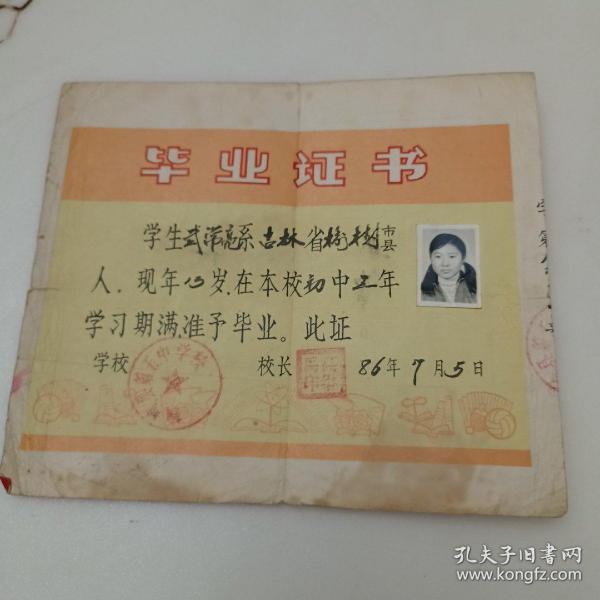 毕业证书
学生武 系吉林省榆树市县
人.现年 岁.在本校初中三年
学习期满,准予毕业。此证
学校 校长 86年7月5日
第五中学校
孔夫子旧书网
www.kongfz.com